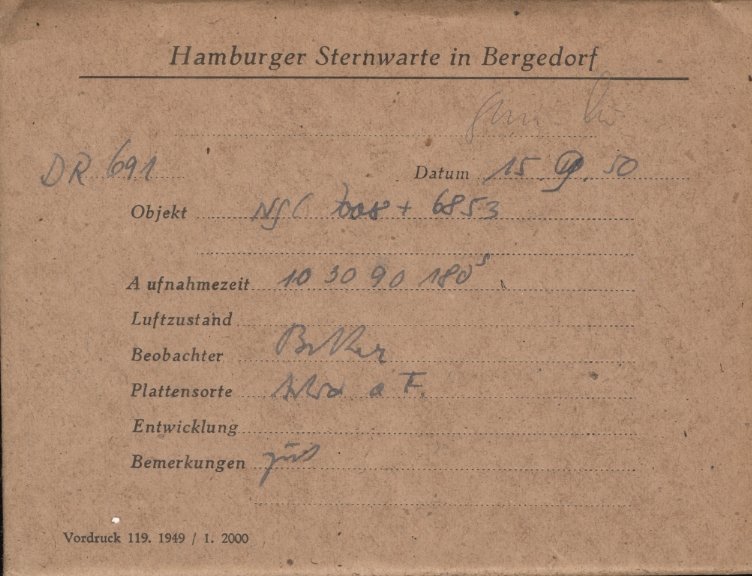 Hamburger Sternwarte in Bergedorf
DR 691
Datum 15. 50
Objekt NGC 7008 + 6853
Aufnahmezeit 10 30 90 180s
Luftzustand
Beobachter
Plattensorte a F.
Entwicklung
Bemerkungen gut
Vordruck 119. 1949 / 1. 2000